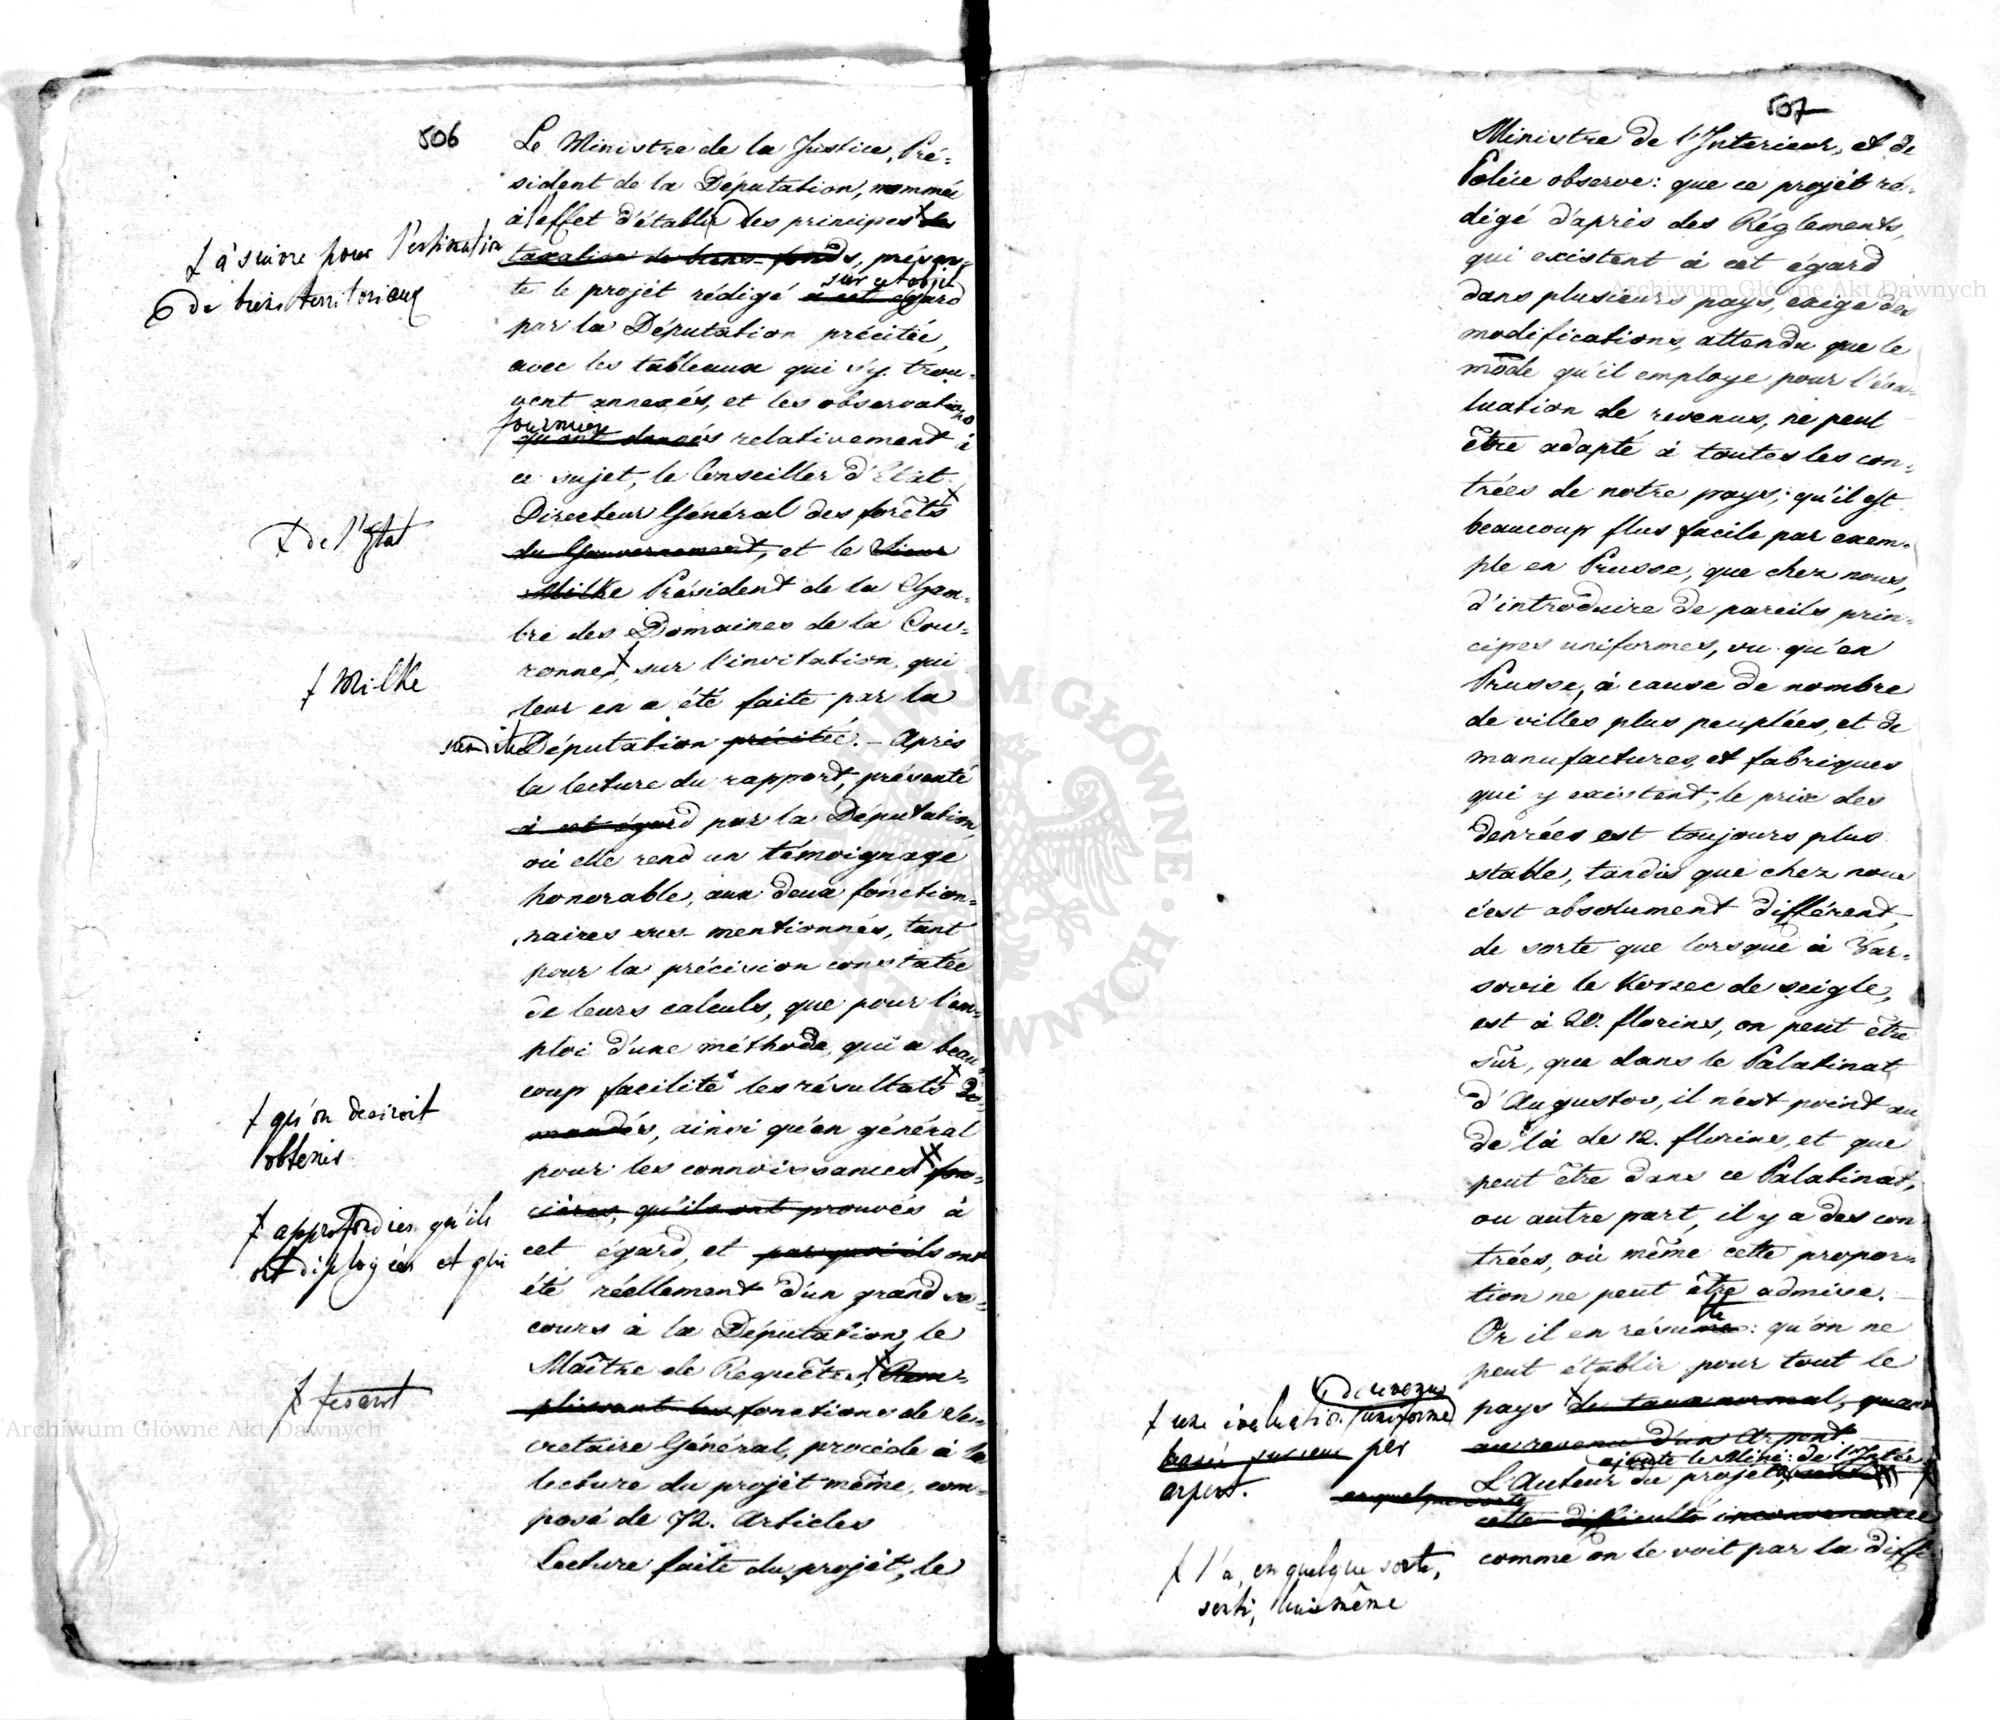 506
Le Ministre de la Justice, Pré-
sident de la Députation, nommée
à l'effet d'établir des principes les
taxation de biens-fonds, présen-
te le projet rédigé à cet égard
sur cet objet
par la Députation précitée,
avec les tableaux qui s'y trou-
vent annexés, et les observations
fournies
qu'ont donnés relativement à
ce sujet, le Conseiller d'Etat
Directeur Général des forêts
du Gouvernement, et le Sieur
Milke Président de la Cham-
bre des Domaines de la Cou-
ronne, sur l'invitation, qui
leur en a été faite par la
susdite Députation précitée. - Après
la lecture du rapport, présenté
à cet égard par la Députation,
où elle rend un témoignage
honorable, aux deux fonction-
naires sus-mentionnés, tant
pour la précision constatée
de leurs calculs, que pour l'em-
ploi d'une méthode, qui a beau-
coup facilité les résultats de-
mandés, ainsi qu'en général
pour les connoissances fon-
cières, qu'ils ont prouvés à
cet égard, et par quoi ils ont
été réellement d'un grand se-
cours à la Députation, le
Maître de Requêtes, Rem-
plissant les fonctions de Se-
cretaire Général, procède à la
lecture du projet même, com-
posé de 72. Articles
Lecture faite du projet, le
à suivre pour l'estimation
de biens territoriaux
de l'Etat
Milke
qu'on desiroit
obtenir
approfondies qu'ils
ont déployées et qui
fesant
507
Ministre de l'Interieur, et de
Police observe: que ce projet ré-
digé d'après des Réglements,
qui existent à cet égard
dans plusieurs pays, exige des
modifications, attendu que le
mode qu'il employe pour l'éva-
luation de revenus, ne peut
être adapté à toutes les con-
trées de notre pays; qu'il est
beaucoup plus facile par exem-
ple en Prusse, que chez nous,
d'introduire de pareils prin-
cipes uniformes, vu qu'en
Prusse, à cause de nombre
de villes plus peuplées, et de
manufactures, et fabriques
qui y existent; le prix des
denrées est toujours plus
stable, tandis que chez nous
c'est absolument différent,
de sorte que lorsque à Var-
sovie le Korzec de seigle,
est à 20. florins, on peut être
sûr, que dans le Palatinat
d'Augustov, il n'est point au
de là de 12. florins, et que
peut être dans ce Palatinat,
ou autre part, il y a des con-
trées, où même cette propor-
tion ne peut être admise.
Or il en résume: qu'on ne
te
peut établir pour tout le
pays de taux normal, quant
au revenu d'un Arpent
ajoute le Mine: de l'Intér:
L'Auteur du projet,
en quelque sorte
cette difficulté inconvenance
comme on le voit par la diffé-
de revenus
une évaluation uniforme
basée par
arpent.
l'a, en quelque sorte,
senti, lui même
Archiwum Główne Akt Dawnych
Archiwum Główne Akt Dawnych
ARCHIWUM GŁÓWNE AKT DAWNYCH